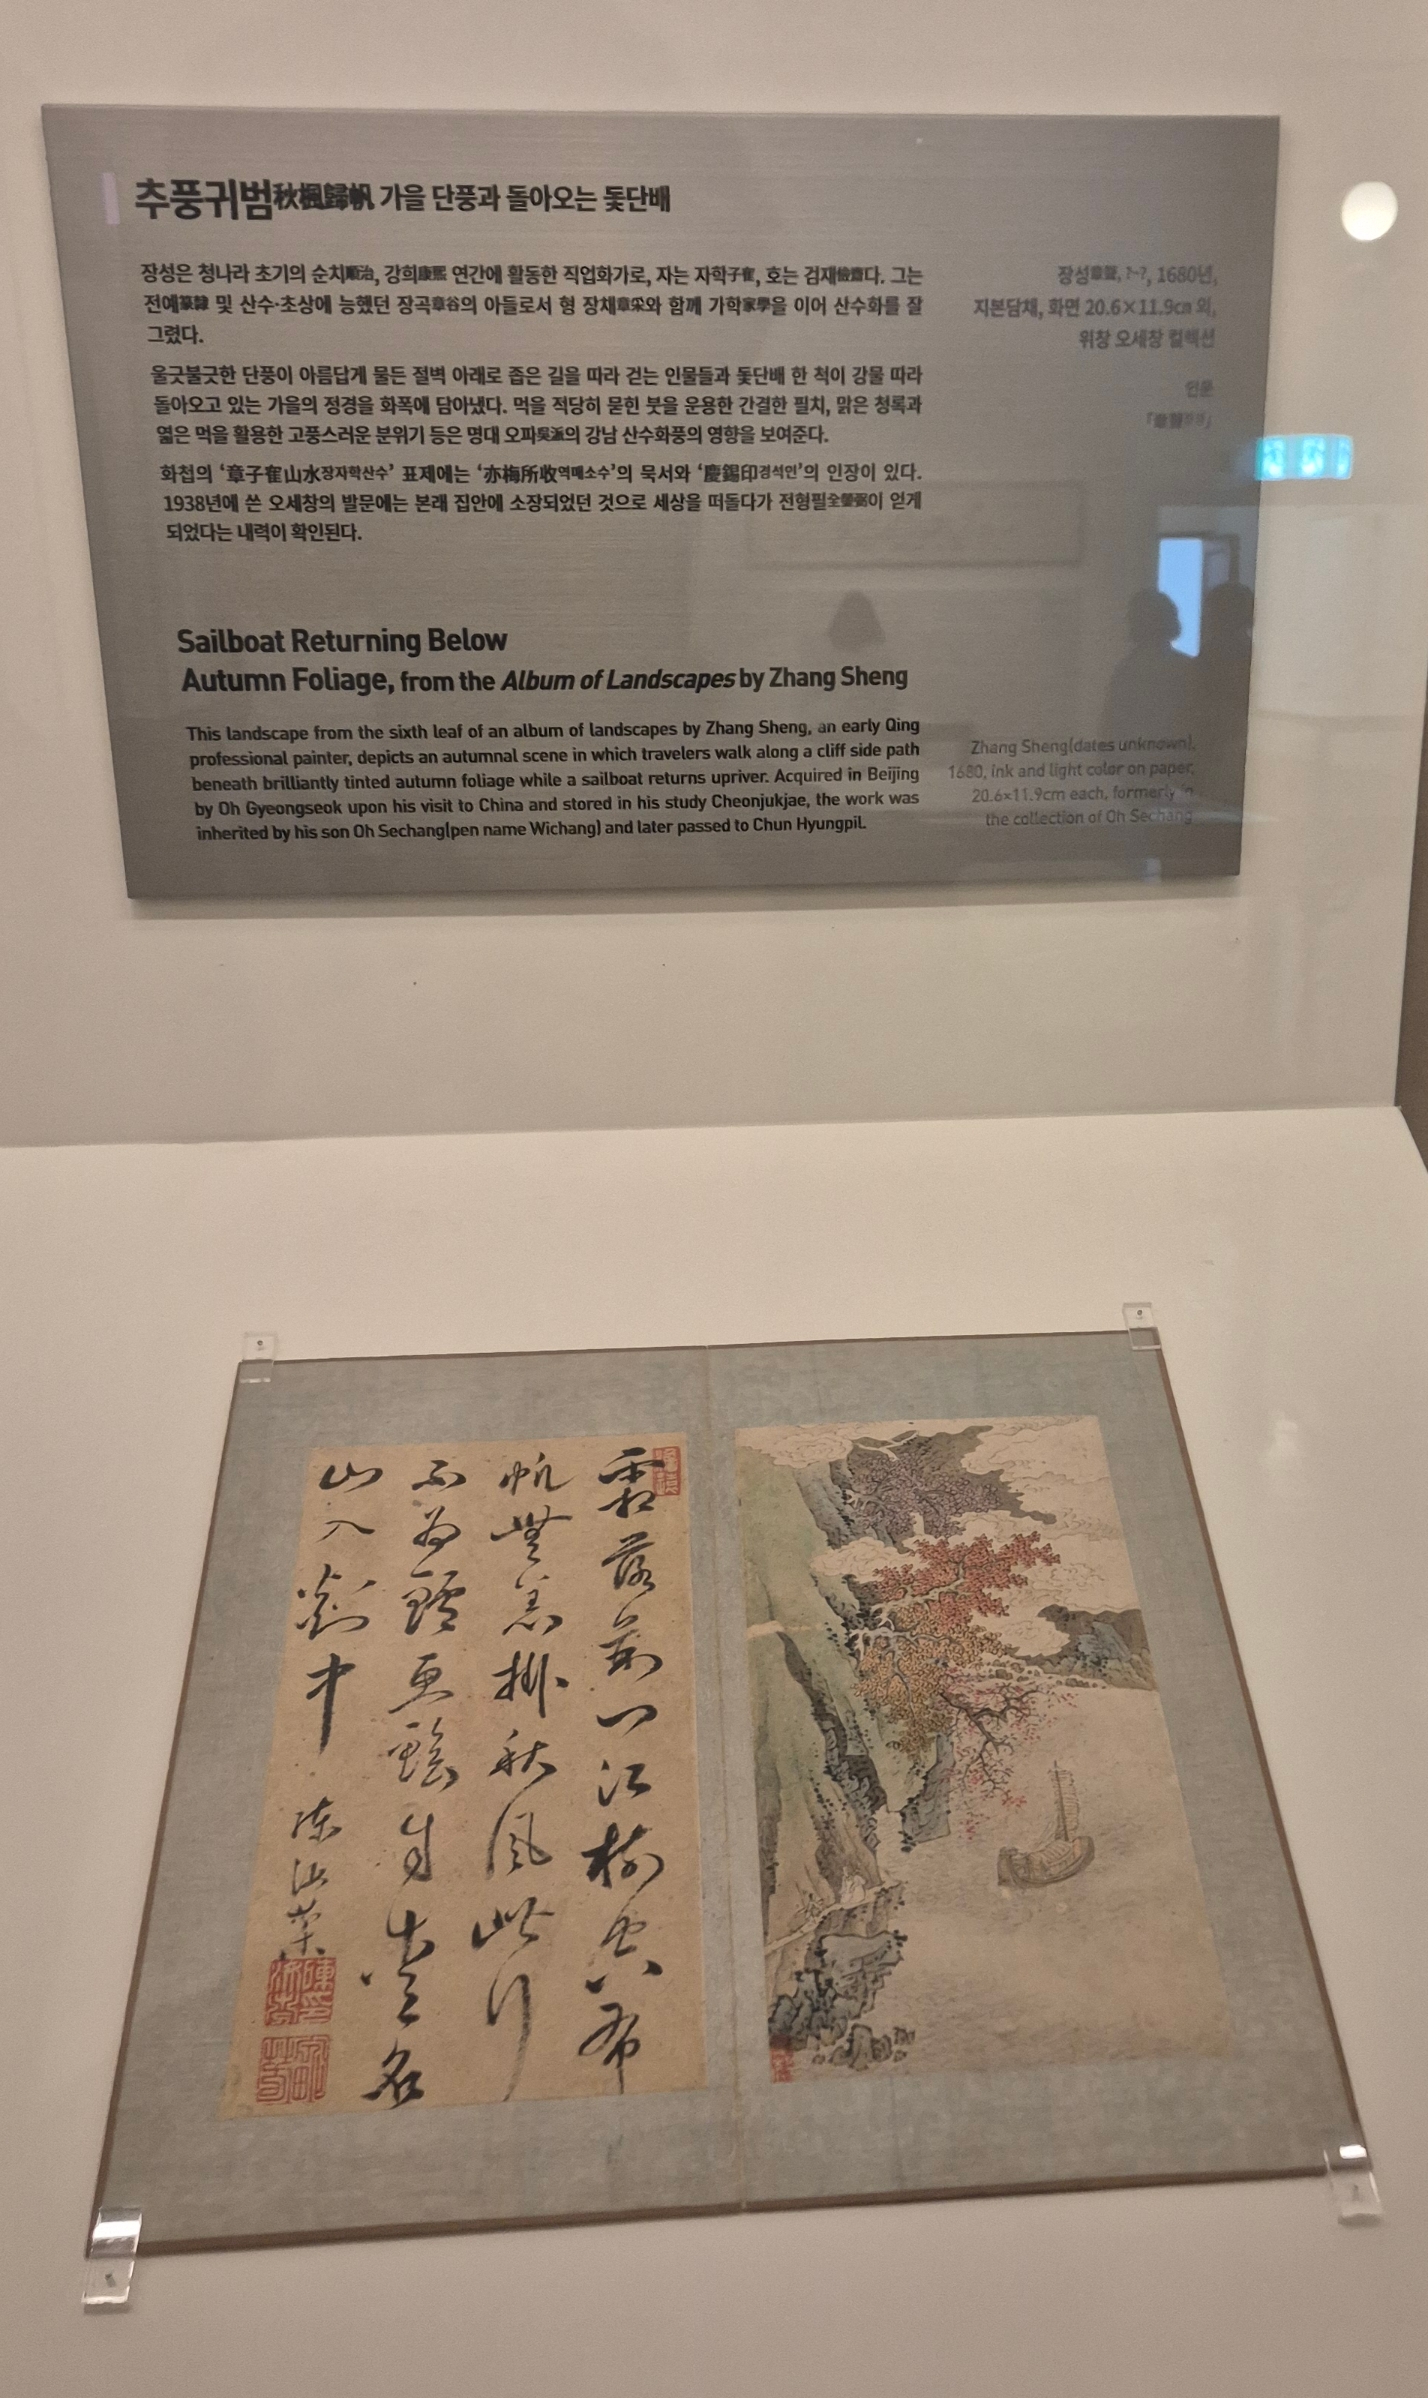 추풍귀범秋楓歸帆 가을 단풍과 돌아오는 돛단배
장성은 청나라 초기의 순치順治, 강희康熙 연간에 활동한 직업화가로, 자는 자학子寉, 호는 검재儉齋다. 그는
전예篆隸 및 산수·초상에 능했던 장곡章谷의 아들로서 형 장채章采와 함께 가학家學을 이어 산수화를 잘
그렸다.
울긋불긋한 단풍이 아름답게 물든 절벽 아래로 좁은 길을 따라 걷는 인물들과 돛단배 한 척이 강물 따라
돌아오고 있는 가을의 정경을 화폭에 담아냈다. 먹을 적당히 묻힌 붓을 운용한 간결한 필치, 맑은 청록과
엷은 먹을 활용한 고풍스러운 분위기 등은 명대 오파吳派의 강남 산수화풍의 영향을 보여준다.
화첩의 ‘章子寉山水장자학산수’ 표제에는 ‘亦梅所收역매소수’의 묵서와 ‘慶錫印경석인’의 인장이 있다.
1938년에 쓴 오세창의 발문에는 본래 집안에 소장되었던 것으로 세상을 떠돌다가 전형필全鎣弼이 얻게
되었다는 내력이 확인된다.
장성章聲, ?~?, 1680년,
지본담채, 화면 20.6×11.9㎝ 외,
위창 오세창 컬렉션
인문
「章聲」
Sailboat Returning Below
Autumn Foliage, from the Album of Landscapes by Zhang Sheng
This landscape from the sixth leaf of an album of landscapes by Zhang Sheng, an early Qing
professional painter, depicts an autumnal scene in which travelers walk along a cliff side path
beneath brilliantly tinted autumn foliage while a sailboat returns upriver. Acquired in Beijing
by Oh Gyeongseok upon his visit to China and stored in his study Cheonjukjae, the work was
inherited by his son Oh Sechang(pen name Wichang) and later passed to Chun Hyungpil.
Zhang Sheng(dates unknown),
1680, ink and light color on paper,
20.6×11.9cm each, formerly in
the collection of Oh Sechang
霜落荊門江樹空布
帆無恙挂秋風此行
不為鱸魚鱠自愛名
山入剡中